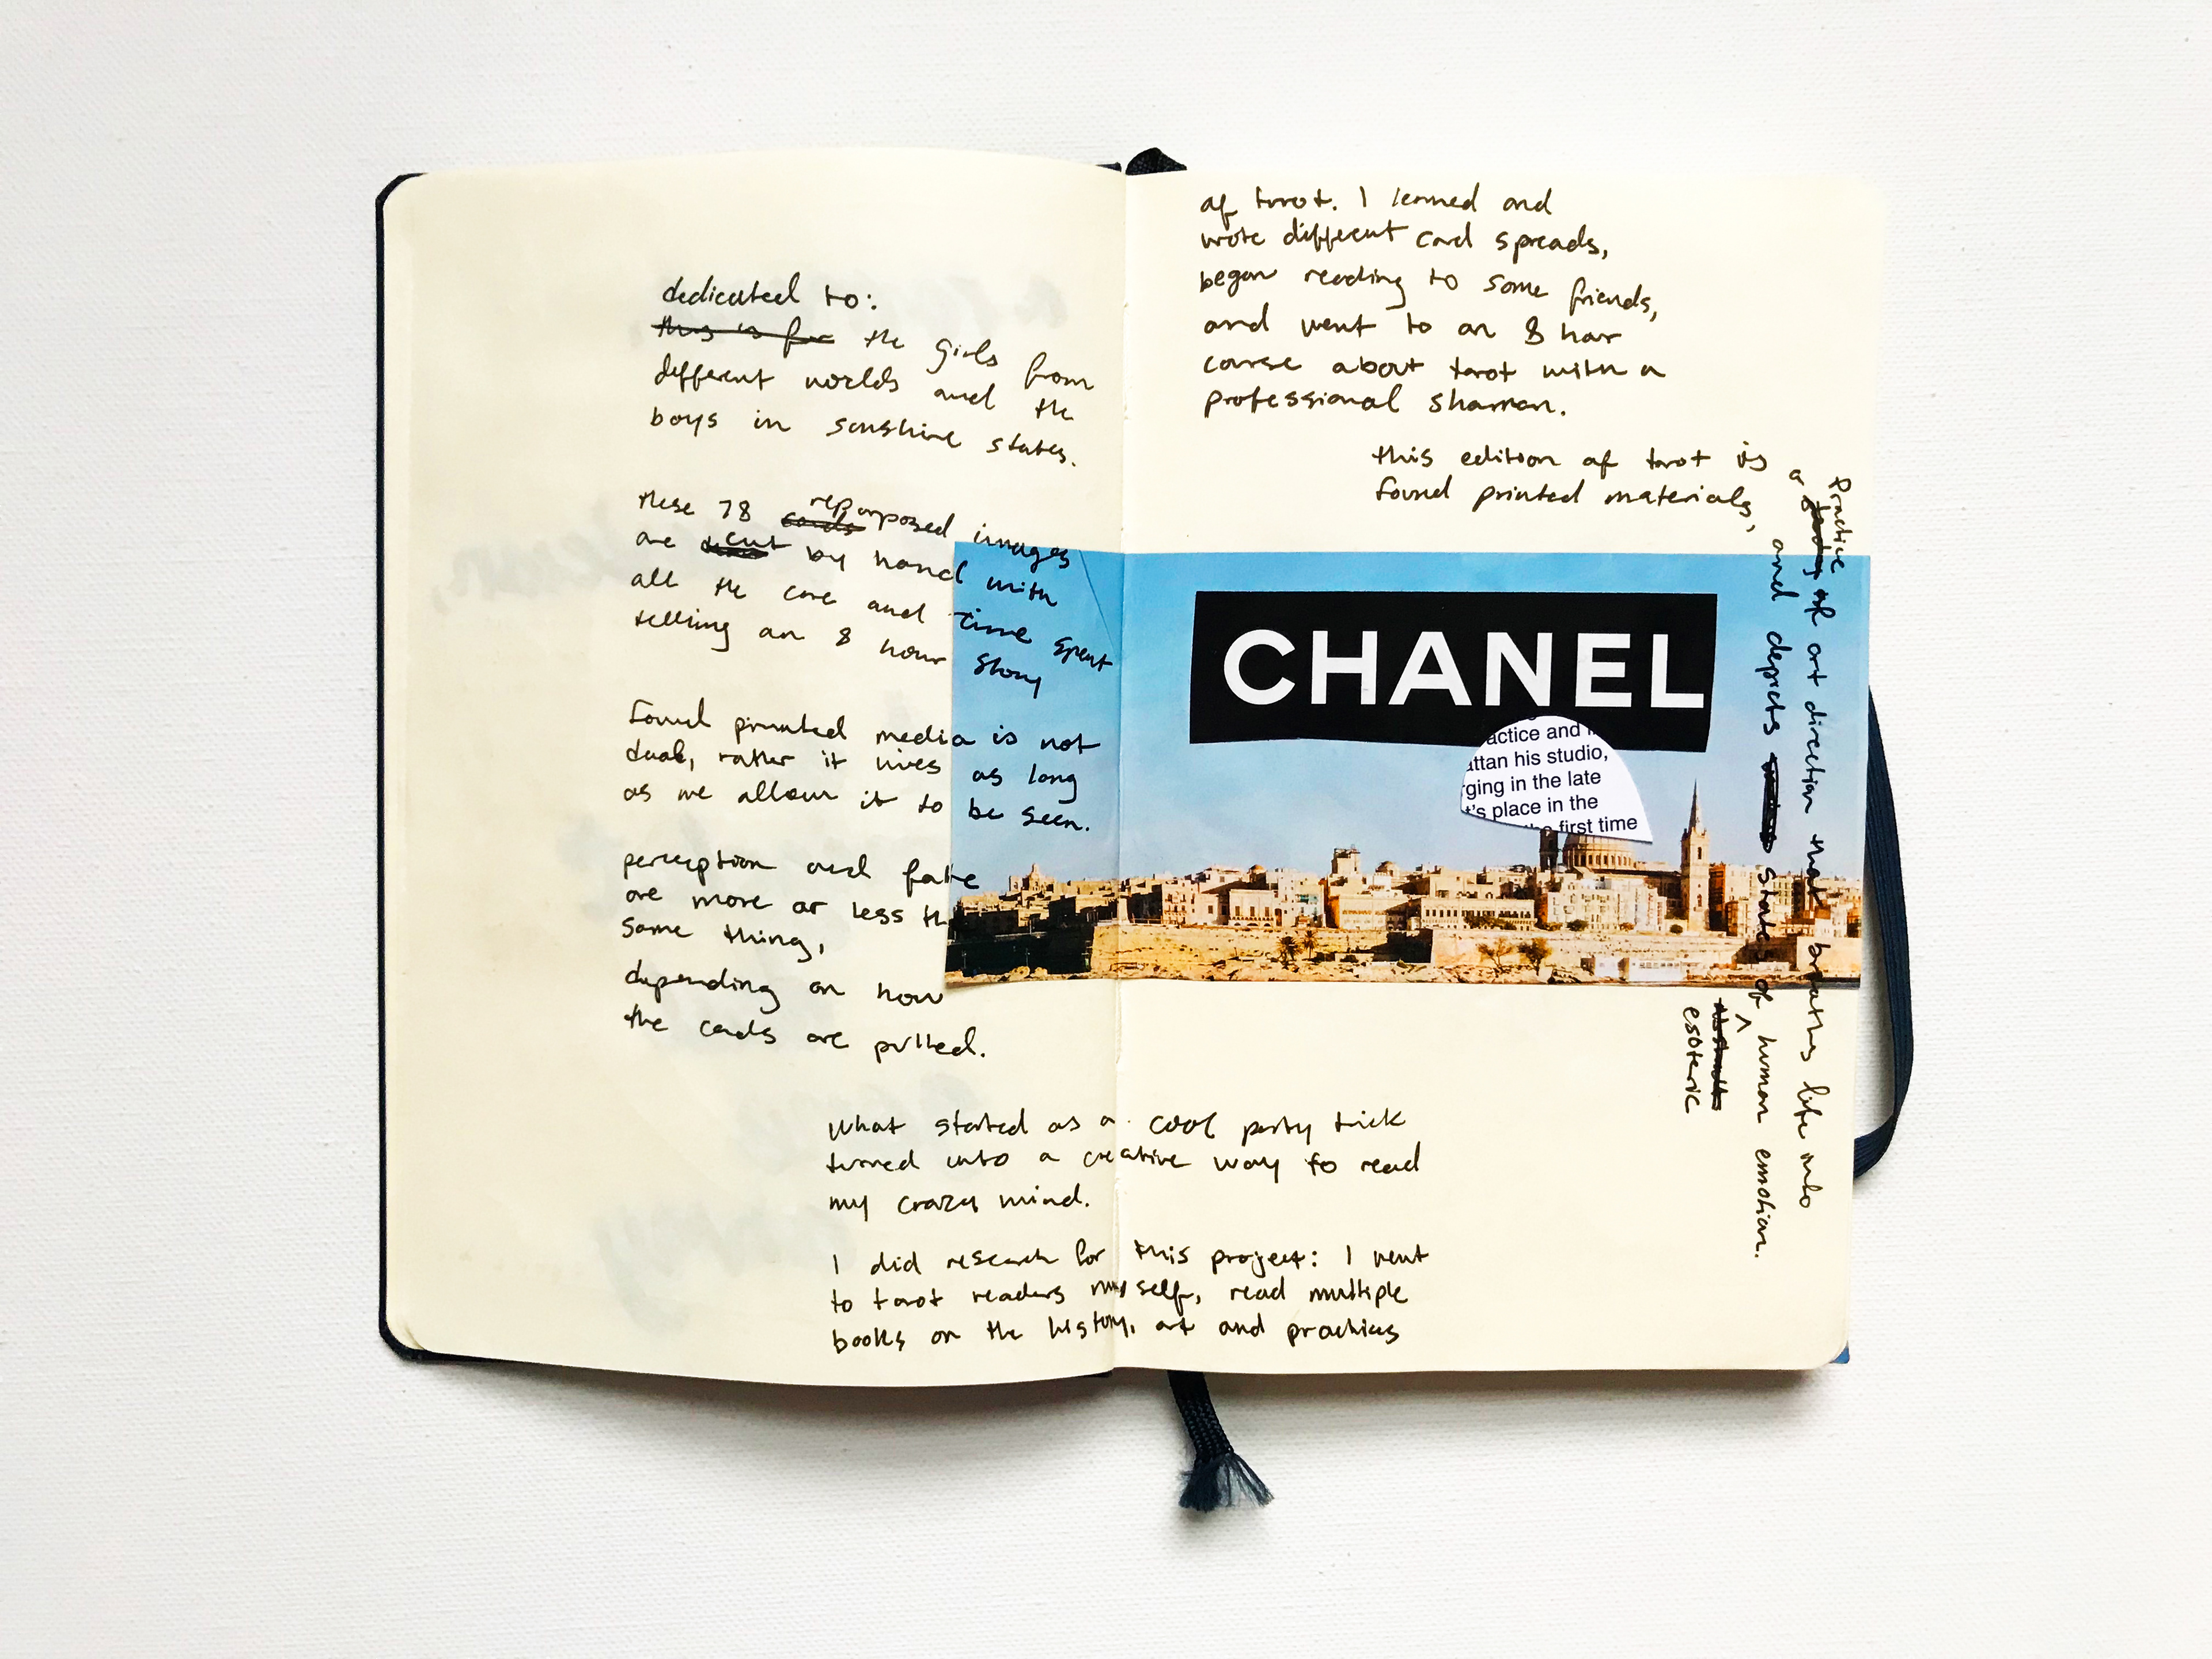 dedicated to:
this is for the girls from
different worlds and the
boys in sunshine states.
these 78 cards repurposed images
are cut by hand with
all the care and time spent
telling an 8 hour story
found printed media is not
dead, rather it lives as long
as we allow it to be seen.
perception and fate
are more or less th
same thing,
depending on how
the cards are pulled.
What started as a cool party trick
turned into a creative way to read
my crazy mind.
I did research for this project: I went
to tarot readers myself, read multiple
books on the history, art and practices
of tarot. I learned and
wrote different card spreads,
began reading to some friends,
and went to an 8 hour
course about tarot with a
professional shaman.
this edition of tarot is
found printed materials,
a practice of art direction that breathes life into
and depicts states of human emotion.
esoteric
CHANEL
actice and
attan his studio,
rging in the late
t's place in the
first time